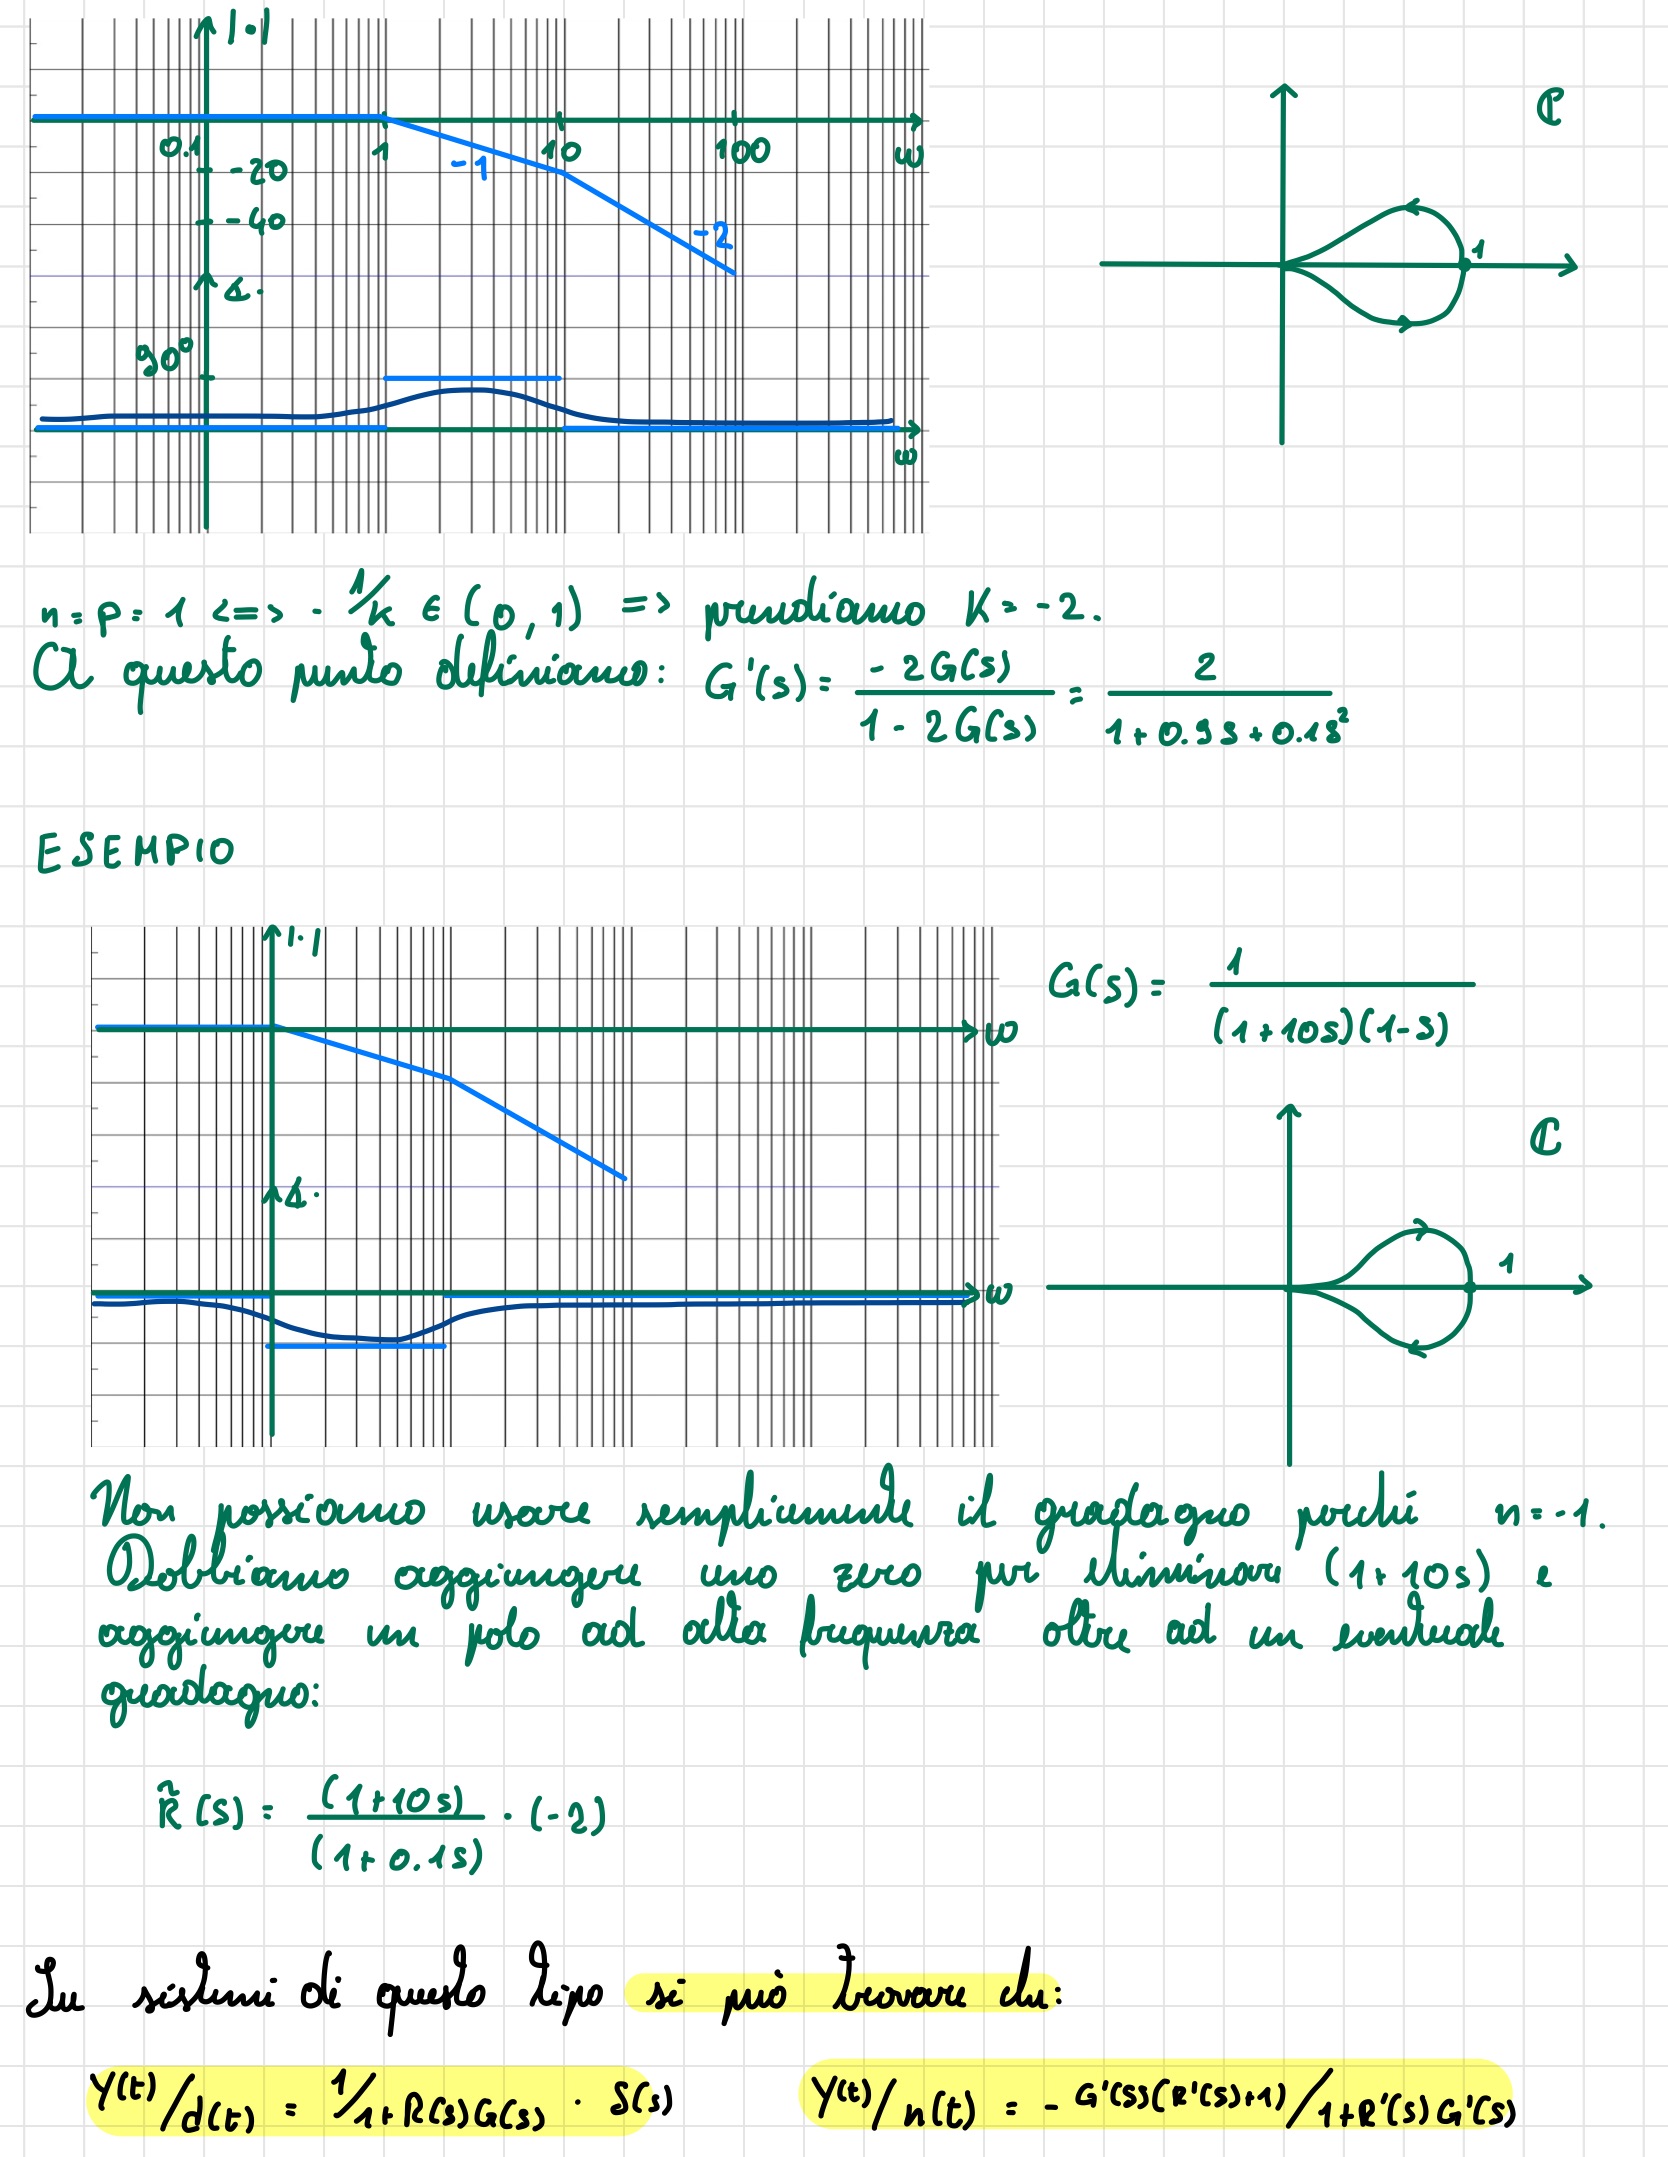 |·|
0.1 1 10 100 ω
-1
-20
-40
-2
∡·
90°
ω
ℂ
1
n = p = 1 <=> - 1/K ∈ (0,1) => prendiamo K = -2.
A questo punto definiamo: G'(s) = -2G(s) / 1-2G(s) = 2 / 1+0.9s+0.1s²
ESEMPIO
|·|
ω
∡·
ω
G(s) = 1 / (1+10s)(1-s)
ℂ
1
Non possiamo usare semplicemente il guadagno perché n=-1.
Dobbiamo aggiungere uno zero per eliminare (1+10s) e
aggiungere un polo ad alta frequenza oltre ad un eventuale
guadagno:
R̃(s) = (1+10s) / (1+0.1s) · (-2)
In sistemi di questo tipo si può trovare che:
Y(t)/d(t) = 1/1+R(s)G(s) · S(s) Y(t)/n(t) = - G'(s)(R'(s)+1)/1+R'(s)G'(s)